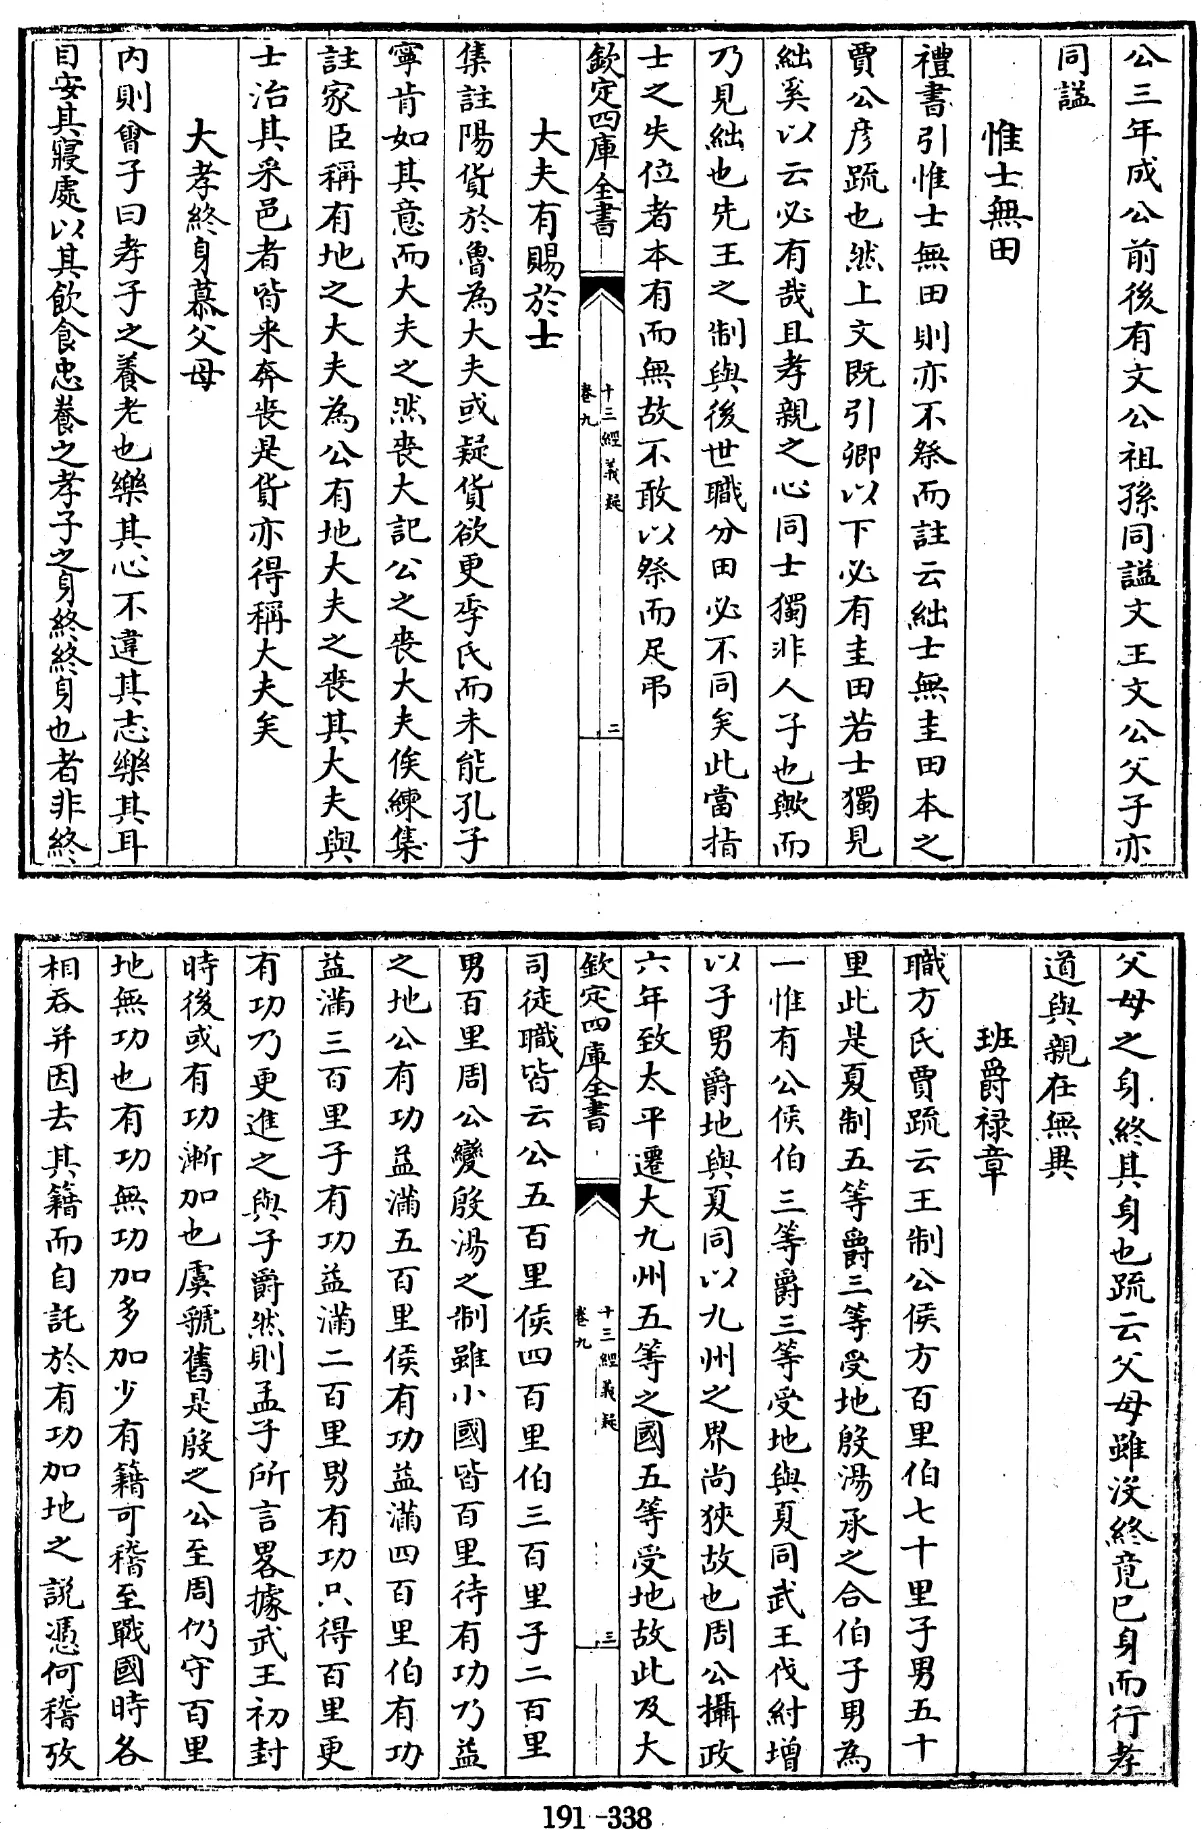 公三年成公前後有文公祖孫同謚文王文公父子亦
同謚
惟士無田
禮書引惟士無田則亦不祭而註云絀士無圭田本之
賈公彥疏也然上文既引卿以下必有圭田若士獨見
絀奚以云必有哉且孝親之心同士獨非人子也歟而
乃見絀也先王之制與後世職分田必不同矣此當指
士之失位者本有而無故不敢以祭而足弔
欽定四庫全書
十三經義疑
卷九
二
大夫有賜於士
集註陽貨於魯為大夫或疑貨欲更季氏而未能孔子
寧肯如其意而大夫之然喪大記公之喪大夫俟練集
註家臣稱有地之大夫為公有地大夫之喪其大夫與
士治其采邑者皆来奔喪是貨亦得稱大夫矣
大孝終身慕父母
內則曾子曰孝子之養老也樂其心不違其志樂其耳
目安其寢處以其飲食忠養之孝子之身終終身也者非終
父母之身終其身也疏云父母雖沒終竟已身而行孝
道與親在無異
班爵禄章
職方氏賈疏云王制公侯方百里伯七十里子男五十
里此是夏制五等爵三等受地殷湯承之合伯子男為
一惟有公侯伯三等爵三等受地與夏同武王伐紂增
以子男爵地與夏同以九州之界尚狹故也周公攝政
六年致太平遷大九州五等之國五等受地故此及大
欽定四庫全書
十三經義疑
卷九
三
司徒職皆云公五百里侯四百里伯三百里子二百里
男百里周公變殷湯之制雖小國皆百里待有功乃益
之地公有功益滿五百里侯有功益滿四百里伯有功
益滿三百里子有功益滿二百里男有功只得百里更
有功乃更進之與子爵然則孟子所言畧據武王初封
時後或有功漸加也虞虢舊是殷之公至周仍守百里
地無功也有功無功加多加少有籍可稽至戰國時各
相吞并因去其籍而自託於有功加地之説憑何稽攷
191-338